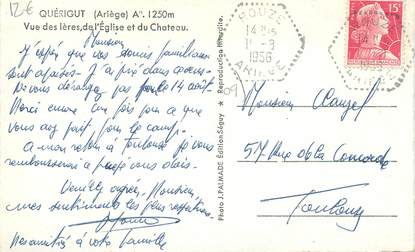 12€
QUÉRIGUT (Ariège) A^t. 1250m
Vue des 1ères, de l'Église et du Chateau.
Monsieur
J'espère que vos soucis familiaux
sont
Je vous dérange pas pour le 14 août
Merci encore une fois pour ce que
vous avez fait pour le camp.
A mon retour à Toulouse je vous
rembourserai
Veuillez agréer, Monsieur,
mes sentiments les plus respectueux
à votre famille
Photo J. PALMADE Édition-Séguy ★ Reproduction interdite.
ROUZE
11-8
1956
ARIEGE
09
15F
Monsieur
57 Rue de la Concorde
Toulouse